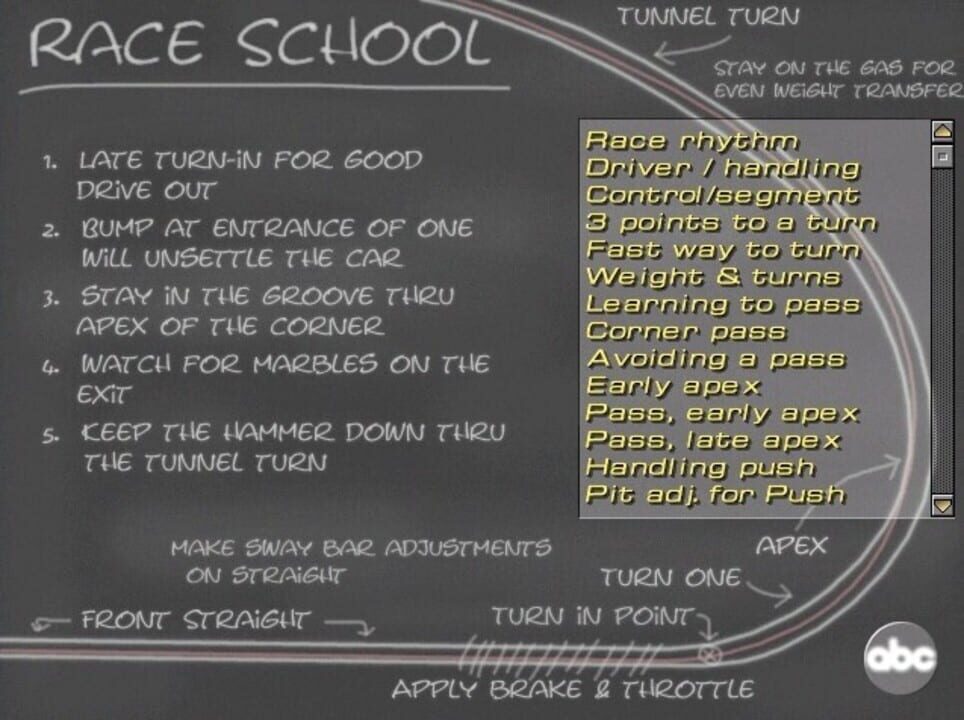 RACE SCHOOL
TUNNEL TURN
STAY ON THE GAS FOR
EVEN WEIGHT TRANSFER
1. LATE TURN-IN FOR GOOD
DRIVE OUT
2. BUMP AT ENTRANCE OF ONE
WILL UNSETTLE THE CAR
3. STAY IN THE GROOVE THRU
APEX OF THE CORNER
4. WATCH FOR MARBLES ON THE
EXIT
5. KEEP THE HAMMER DOWN THRU
THE TUNNEL TURN
Race rhythm
Driver / handling
Control/segment
3 points to a turn
Fast way to turn
Weight & turns
Learning to pass
Corner pass
Avoiding a pass
Early apex
Pass, early apex
Pass, late apex
Handling push
Pit adj. for Push
MAKE SWAY BAR ADJUSTMENTS
ON STRAIGHT
APEX
TURN ONE
FRONT STRAIGHT
TURN IN POINT
APPLY BRAKE & THROTTLE
abc